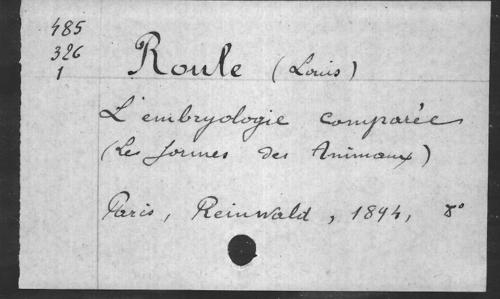 485
326
1
Roule (Louis)
L'embryologie comparée
(Les formes des Animaux)
Paris, Reinwald, 1894, 8°